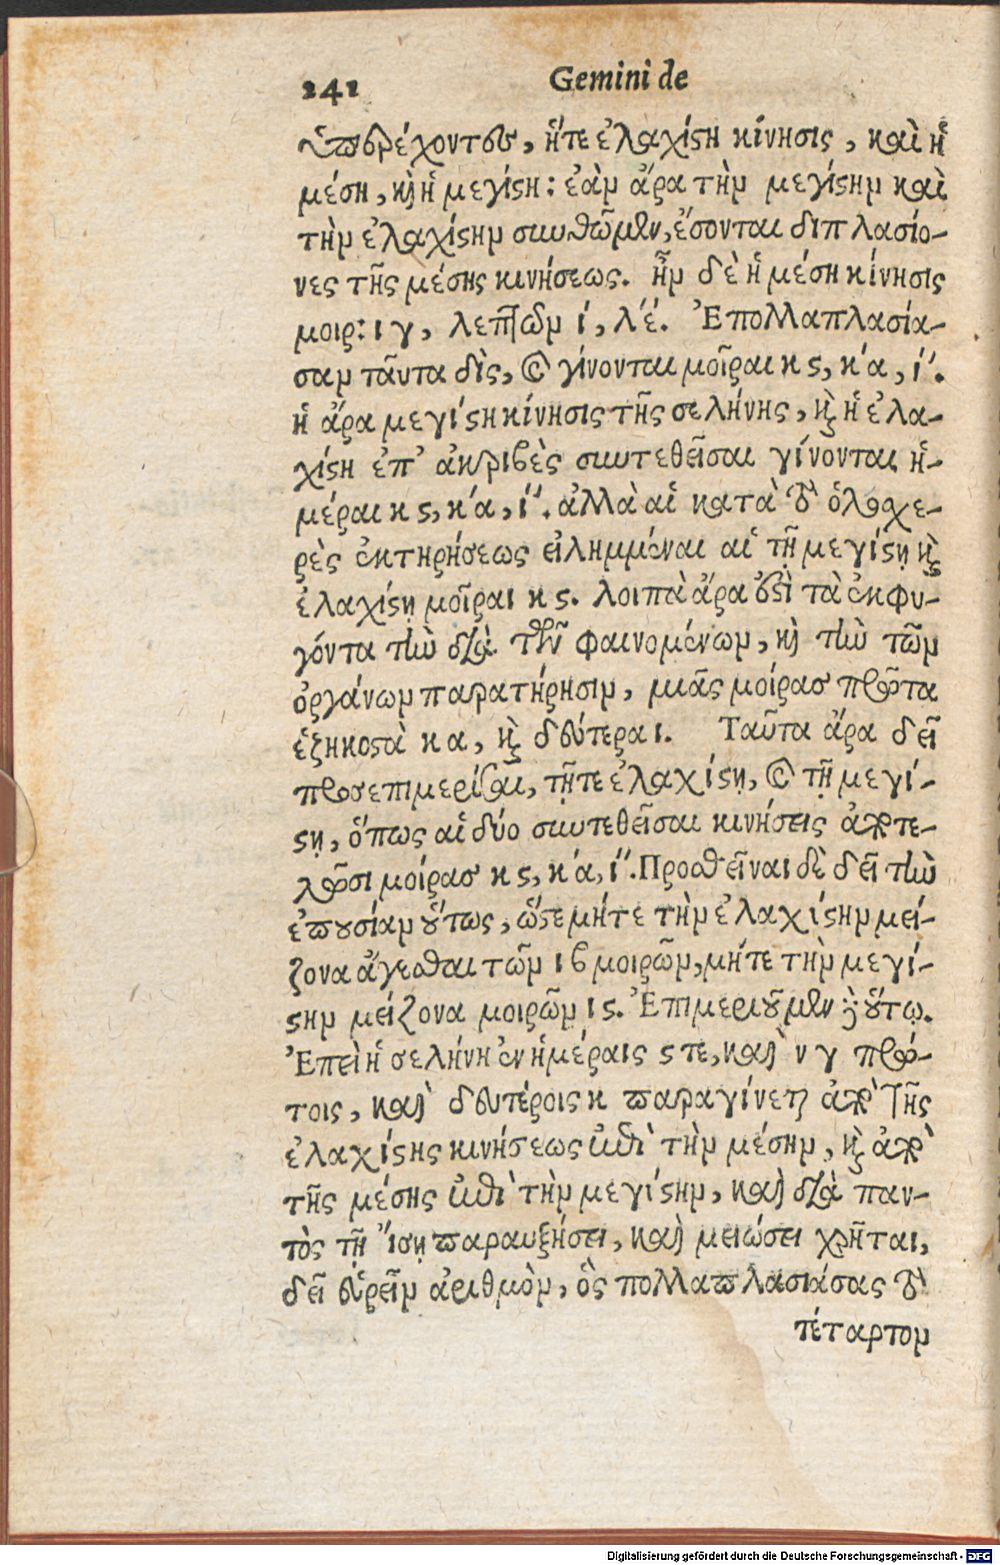 242 Gemini de
ὑπερέχοντες, ἥτε ἐλαχίστη κίνησις, καὶ ἡ
μέση, καὶ ἡ μεγίστη: ἐὰν ἄρα τὴν μεγίστην καὶ
τὴν ἐλαχίστην συνθῶμεν, ἔσονται διπλασίο-
νες τῆς μέσης κινήσεως. ἦν δὲ ἡ μέση κίνησις
μοιρ: ιγ, λεπτῶν ί, λέ. Ἐπολλαπλασία-
σαν ταῦτα δὶς, καὶ γίνονται μοῖραι κϛ, κ'ά, ί''.
ἡ ἄρα μεγίστη κίνησις τῆς σελήνης, καὶ ἡ ἐλα-
χίστη ἐπ' ἀκριβὲς συντεθεῖσαι γίνονται ἡ-
μέραι κϛ, κ'ά, ί''. ἀλλὰ αἱ κατὰ τὸ ὁλοσχε-
ρὲς ἐκτηρήσεως εἰλημμέναι αἱ τῇ μεγίστῃ καὶ
ἐλαχίστῃ μοῖραι κϛ. λοιπὰ ἄρα ἐστὶ τὰ ἐκφυ-
γόντα τὴν διὰ τῶν φαινομένων, καὶ τὴν τῶν
ὀργάνων παρατήρησιν, μιᾶς μοίρας πρῶτα
ἑξηκοστὰ κα, καὶ δεύτερα ι. Ταῦτα ἄρα δεῖ
προσεπιμερίσαι, τῇτε ἐλαχίστῃ, καὶ τῇ μεγί-
στῃ, ὅπως αἱ δύο συντεθεῖσαι κινήσεις ἀποτε-
λῶσι μοίρας κϛ, κ'ά, ί''. Προσθεῖναι δὲ δεῖ τὴν
ἐπουσίαν οὕτως, ὥστε μήτε τὴν ἐλαχίστην μεί-
ζονα ἄγεσθαι τῶν ιβ μοιρῶν, μήτε τὴν μεγί-
στην μείζονα μοιρῶν ιϛ. Ἐπιμεριοῦμεν γὰρ οὕτω.
Ἐπεὶ ἡ σελήνη ἐν ἡμέραις ϛτε, καὶ νγ πρώ-
τοις, καὶ δευτέροις κ παραγίνεται ἀπὸ τῆς
ἐλαχίστης κινήσεως ἐπὶ τὴν μέσην, καὶ ἀπὸ
τῆς μέσης ἐπὶ τὴν μεγίστην, καὶ διὰ παν-
τὸς τῇ ἴσῃ παραυξήσει, καὶ μειώσει χρῆται,
δεῖ εὑρεῖν ἀριθμὸν, ὃς πολλαπλασιάσας τὸ
τέταρτον
Digitalisierung gefördert durch die Deutsche Forschungsgemeinschaft - DFG